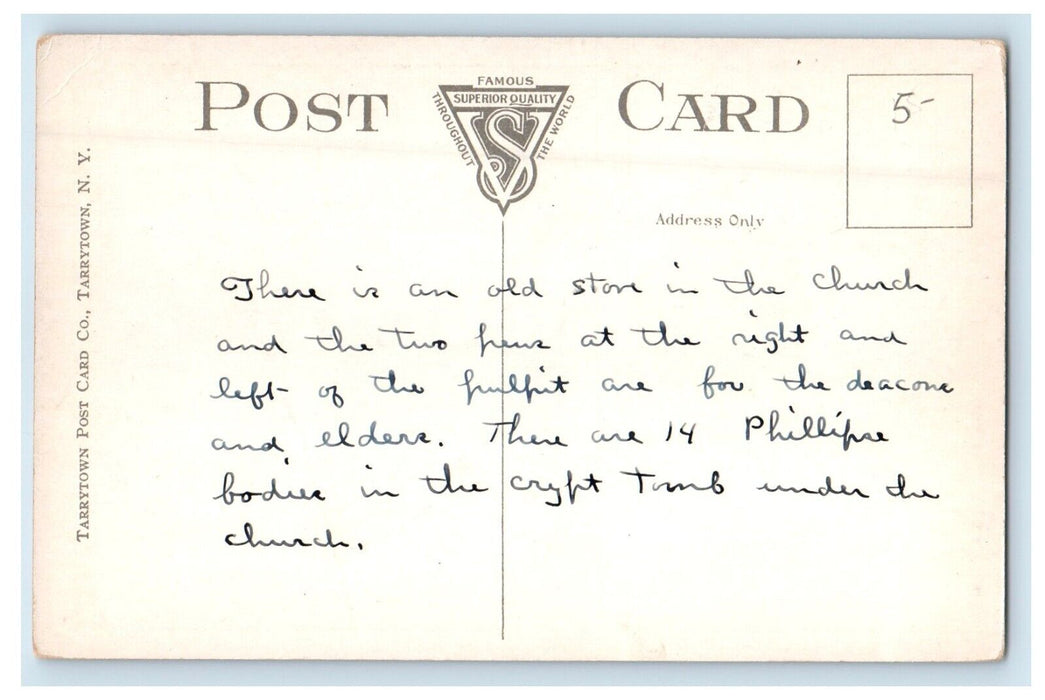 POST CARD
FAMOUS
THROUGHOUT
THE WORLD
SUPERIOR QUALITY
VS
5-
Address Only
TARRYTOWN POST CARD CO., TARRYTOWN, N. Y.
There is an old stove in the church
and the two pews at the right and
left of the pulpit are for the deacons
and elders. There are 14 Phillipse
bodies in the crypt Tomb under the
church.